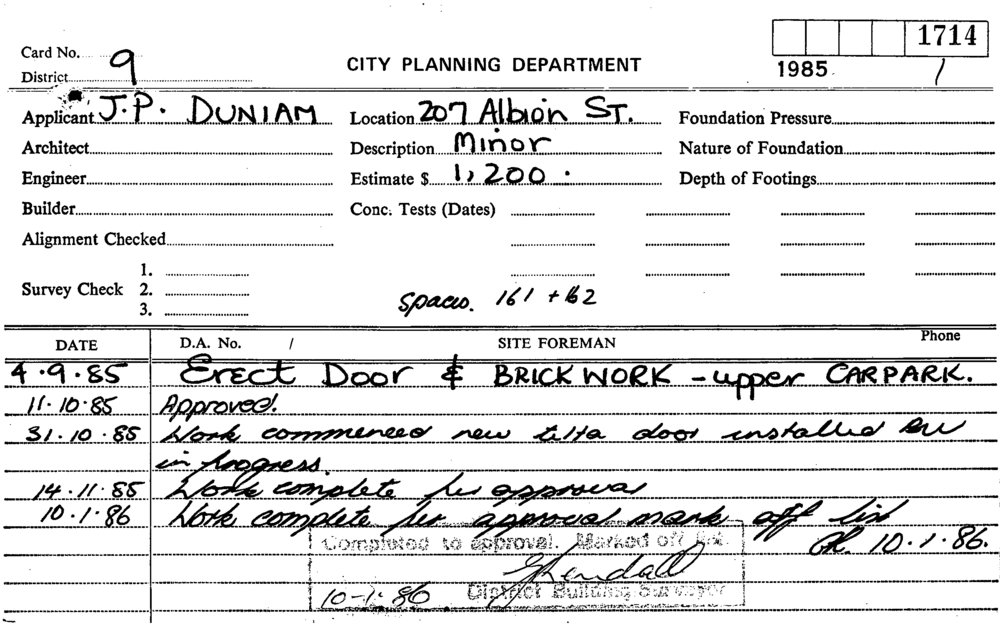 1714
Card No. 9
CITY PLANNING DEPARTMENT
1985 /
District
Applicant J.P. DUNIAM Location 207 Albion ST. Foundation Pressure
Architect Description Minor Nature of Foundation
Engineer Estimate $ 1,200. Depth of Footings
Builder Conc. Tests (Dates)
Alignment Checked
1.
Survey Check 2.
3.
Spaces. 161 + 162
DATE D.A. No. / SITE FOREMAN Phone
4.9.85 Erect Door & BRICKWORK - upper CARPARK.
11.10.85 Approved.
31.10.85 Work commenced new tilta door installed
in progress.
14.11.85 Work complete per approval
10.1.86 Work complete per approval mark off list
10.1.86.
Completed to approval. Marked off list.
Kendall
10-1-86 District Building Surveyor